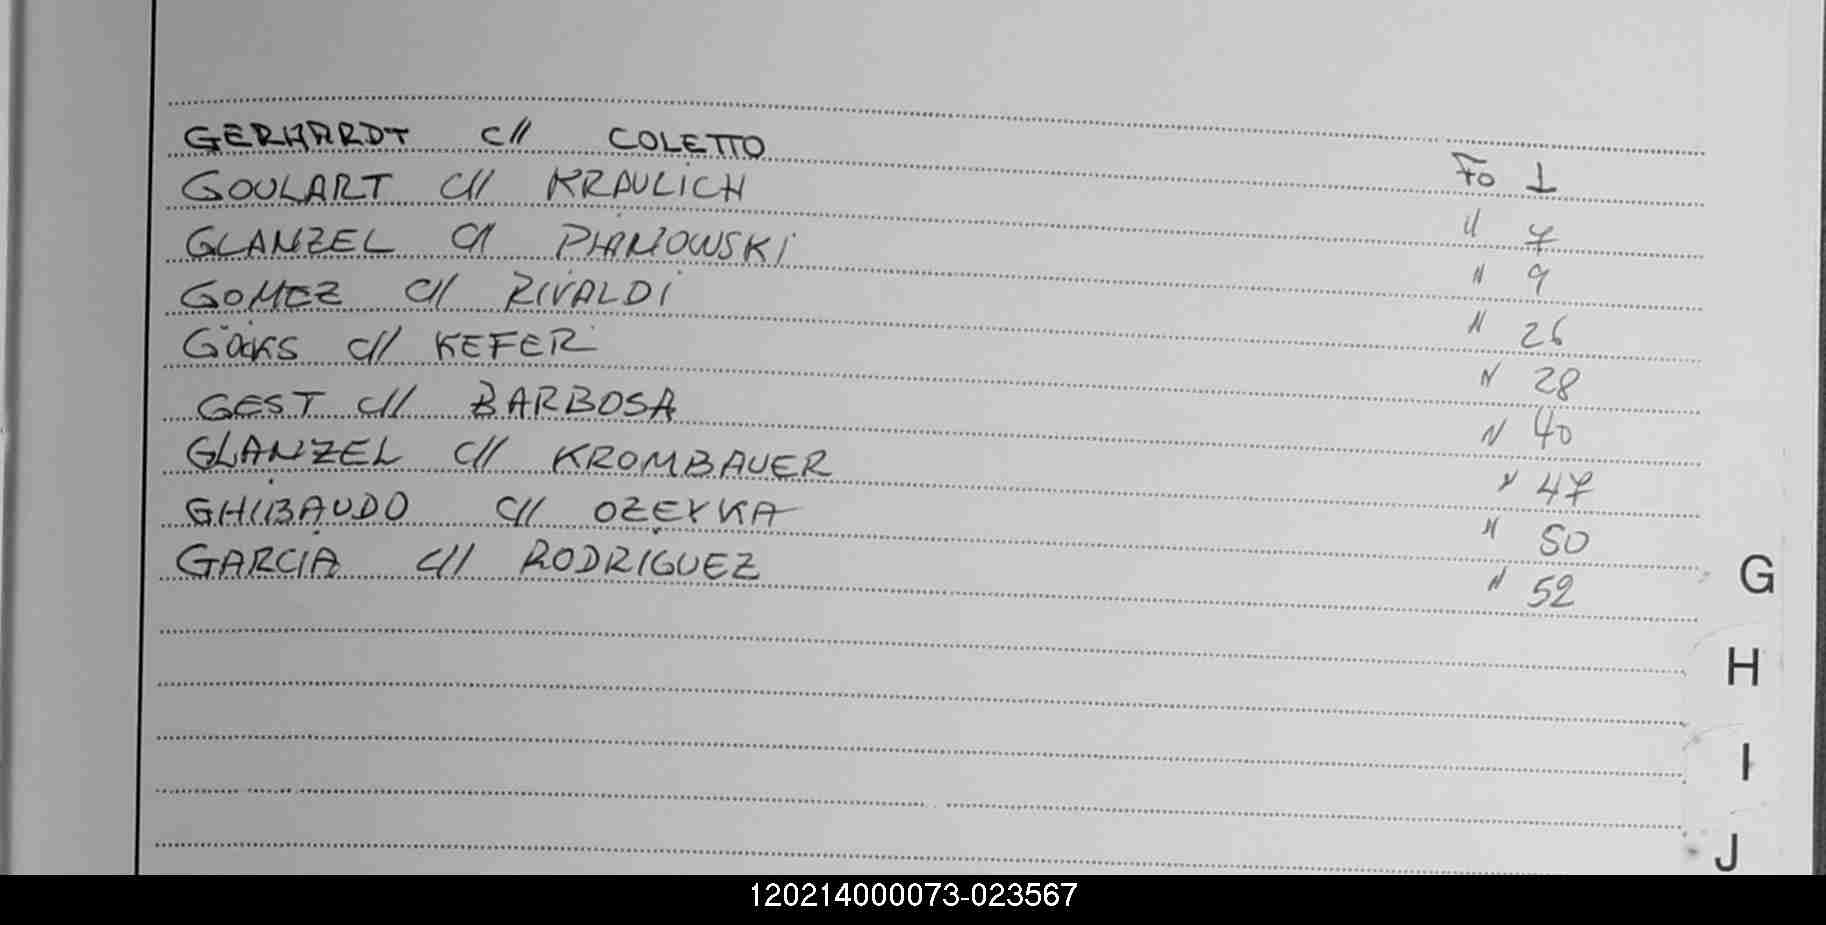 GERHARDT c// COLETTO Fo 1
GOULART c// KRAULICH " 7
GLANZEL c// PIANOWSKI " 9
GOMEZ c// RIVALDI " 26
GÖCKS c// KEFER " 28
GEST c// BARBOSA " 40
GLANZEL c// KROMBAUER " 47
GHIBAUDO c// OZEYKA " 50
GARCIA c// RODRIGUEZ " 52
G
H
I
J
120214000073-023567